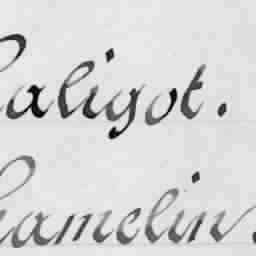 Caligot.
Hamelin.